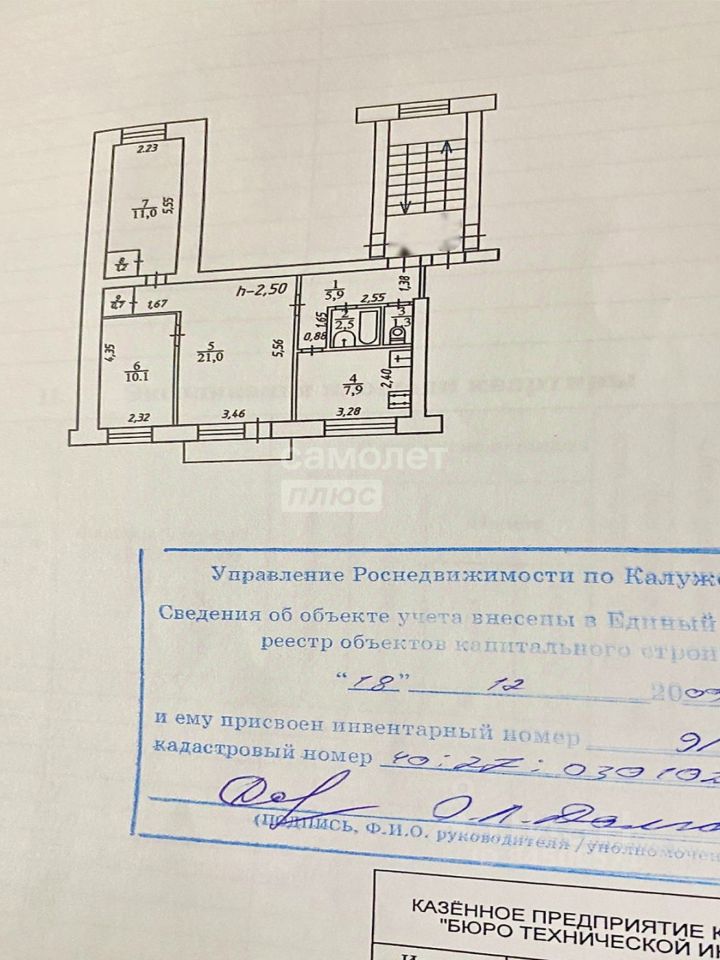 2.23
7
11,0
5,55
8
1,2
9
0,7
1,67
h-2,50
1
5,9
2,55
1,38
1,65
2
2,5
3
1,3
0,88
5
21,0
5,56
4,35
6
10.1
4
7,9
2,40
2,32
3,46
3,28
самолет
плюс
Управление Роснедвижимости по Калуж
Сведения об объекте учета внесены в Единый
реестр объектов капитального строи
"18" 12 2009
и ему присвоен инвентарный номер 91
кадастровый номер 40:27:030102
О.Л. Долго
(подпись, Ф.И.О. руководителя /уполномочен
КАЗЁННОЕ ПРЕДПРИЯТИЕ К
"БЮРО ТЕХНИЧЕСКОЙ ИН